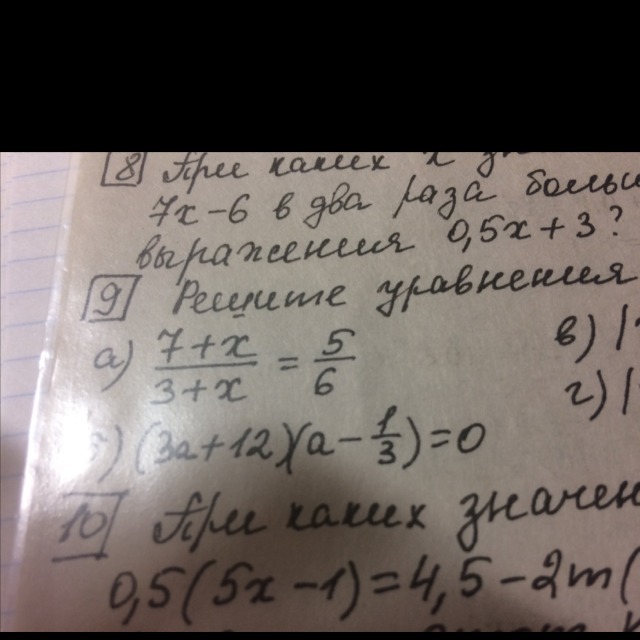 8 При каких x
7x-6 в два раза
выражения 0,5x+3?
9 Решите уравнения
а) (7+x)/(3+x) = 5/6
в) |
г) |
б) (3a+12)(a-1/3)=0
10 При каких
0,5(5x-1)=4,5-2m(